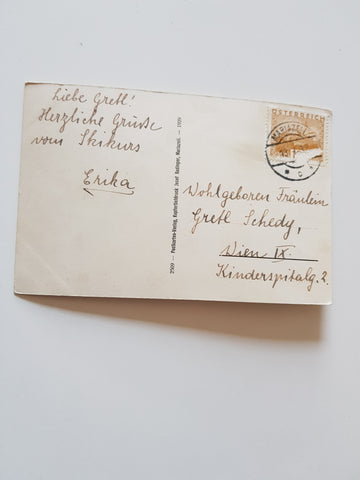 Liebe Gretl!
Herzliche Grüße
vom Skikurs
Erika
2509 — Postkarten-Verlag, Kupfertiefdruck Josef Kuss, Mariazell. — 1929
ÖSTERREICH
MARIAZELL
Wohlgeboren Fräulein
Gretl Schedy,
Wien IX.
Kinderspitalg. 2.